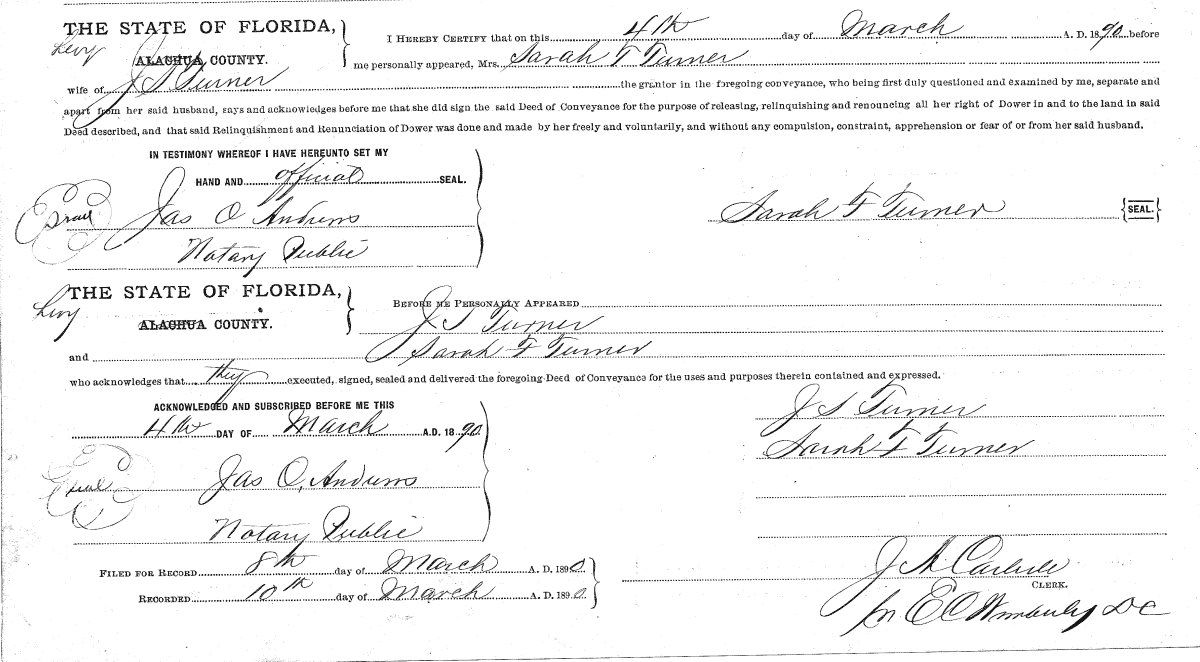 THE STATE OF FLORIDA,
Levy
ALACHUA COUNTY.
I HEREBY CERTIFY that on this 4th day of March A. D. 1890 before
me personally appeared, Mrs. Sarah F Turner
wife of J S Turner the grantor in the foregoing conveyance, who being first duly questioned and examined by me, separate and
apart from her said husband, says and acknowledges before me that she did sign the said Deed of Conveyance for the purpose of releasing, relinquishing and renouncing all her right of Dower in and to the land in said
Deed described, and that said Relinquishment and Renunciation of Dower was done and made by her freely and voluntarily, and without any compulsion, constraint, apprehension or fear of or from her said husband.
IN TESTIMONY WHEREOF I HAVE HEREUNTO SET MY
HAND AND official SEAL.
Seal
Jas O Andrews
Notary Public
Sarah F Turner {SEAL.}
THE STATE OF FLORIDA,
Levy
ALACHUA COUNTY.
BEFORE ME PERSONALLY APPEARED
J S Turner
and Sarah F Turner
who acknowledges that they executed, signed, sealed and delivered the foregoing Deed of Conveyance for the uses and purposes therein contained and expressed.
ACKNOWLEDGED AND SUBSCRIBED BEFORE ME THIS
4th DAY OF March A.D. 1890
J S Turner
Sarah F Turner
Seal
Jas O. Andrews
Notary Public
FILED FOR RECORD 8th day of March A. D. 1890
RECORDED 10th day of March A. D. 1890
J A Carlisle
CLERK.
E C Wimberly DC